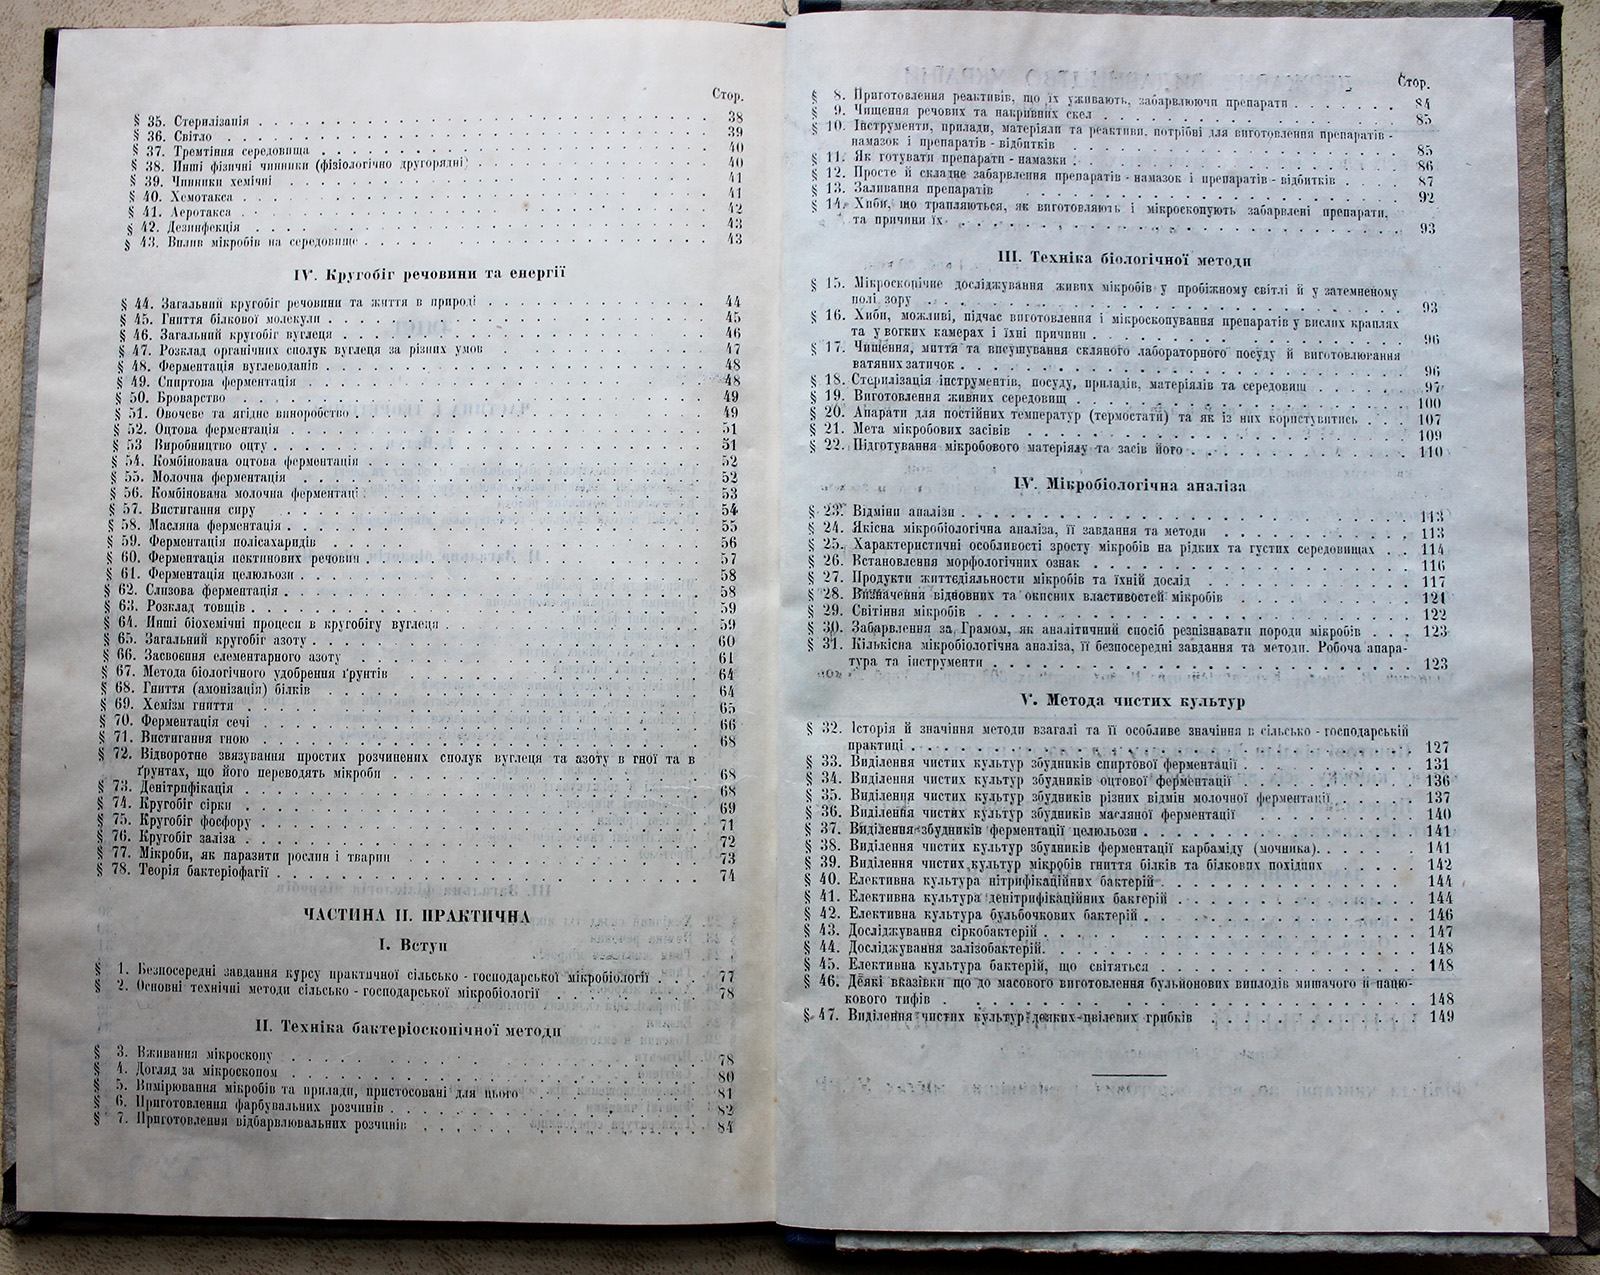 Стор.
§ 35. Стерилізація . . . 38
§ 36. Світло . . . 39
§ 37. Тремтіння середовища . . . 40
§ 38. Инші фізичні чинники (фізіологічно другорядні) . . . 40
§ 39. Чинники хемічні . . . 41
§ 40. Хемотакса . . . 41
§ 41. Аеротакса . . . 42
§ 42. Дезинфекція . . . 43
§ 43. Вплив мікробів на середовище . . . 43
IV. Кругобіг речовини та енергії
§ 44. Загальний кругобіг речовини та життя в природі . . . 44
§ 45. Гниття білкової молекули . . . 45
§ 46. Загальний кругобіг вуглеця . . . 46
§ 47. Розклад органічних сполук вуглеця за різних умов . . . 47
§ 48. Ферментація вуглеводанів . . . 48
§ 49. Спиртова ферментація . . . 48
§ 50. Броварство . . . 49
§ 51. Овочеве та ягідне виноробство . . . 49
§ 52. Оцтова ферментація . . . 51
§ 53 Виробництво оцту . . . 51
§ 54. Комбінована оцтова ферментація . . . 52
§ 55. Молочна ферментація . . . 52
§ 56. Комбіновача молочна ферментаці . . . 53
§ 57. Вистигання сиру . . . 54
§ 58. Масляна ферментація . . . 55
§ 59. Ферментація полісахаридів . . . 56
§ 60. Ферментація пектинових речовин . . . 57
§ 61. Ферментація целюльози . . . 58
§ 62. Слизова ферментація . . . 58
§ 63. Розклад товщів . . . 59
§ 64. Инші біохемічні процеси в кругобігу вуглеця . . . 59
§ 65. Загальний кругобіг азоту . . . 60
§ 66. Засвоєння елементарного азоту . . . 61
§ 67. Метода біологічного удобрення ґрунтів . . . 64
§ 68. Гниття (амонізація) білків . . . 64
§ 69. Хемізм гниття . . . 65
§ 70. Ферментація сечі . . . 66
§ 71. Вистигання гною . . . 68
§ 72. Відворотне звязування простих розчинених сполук вуглеця та азоту в гної та в
ґрунтах, що його переводять мікроби . . . 68
§ 73. Денітрифікація . . . 68
§ 74. Кругобіг сірки . . . 69
§ 75. Кругобіг фосфору . . . 71
§ 76. Кругобіг заліза . . . 72
§ 77. Мікроби, як паразити рослин і тварин . . . 73
§ 78. Теорія бактеріофагії . . . 74
ЧАСТИНА II. ПРАКТИЧНА
I. Вступ
§ 1. Безпосередні завдання курсу практичної сільсько-господарської мікробіології . . . 77
§ 2. Основні технічні методи сільсько-господарської мікробіології . . . 78
II. Техніка бактеріоскопічної методи
§ 3. Вживання мікроскопу . . . 78
§ 4. Догляд за мікроскопом . . . 80
§ 5. Вимірювання мікробів та прилади, пристосовані для цього . . . 81
§ 6. Приготовлення фарбувальних розчинів . . . 82
§ 7. Приготовлення відбарвлювальних розчинів . . . 84
Стор.
§ 8. Приготовлення реактивів, що їх уживають, забарвлюючи препарати . . . 84
§ 9. Чищення речових та накривних скел . . . 85
§ 10. Інструменти, прилади, матеріяли та реактиви, потрібні для виготовлення препаратів-
намазок і препаратів-відбитків . . . 85
§ 11. Як готувати препарати-намазки . . . 86
§ 12. Просте й складне забарвлення препаратів-намазок і препаратів-відбитків . . . 87
§ 13. Заливання препаратів . . . 92
§ 14. Хиби, що трапляються, як виготовляють і мікроскопують забарвлені препарати,
та причини їх . . . 93
III. Техніка біологічної методи
§ 15. Мікроскопічне досліджування живих мікробів у пробіжному світлі й у затемненому
полі зору . . . 93
§ 16. Хиби, можливі, підчас виготовлення і мікроскопування препаратів у вислих краплях
та у вогких камерах і їхні причини . . . 96
§ 17. Чищення, миття та висушування скляного лабораторного посуду й виготовлювання
ватяних затичок . . . 96
§ 18. Стерилізація інструментів, посуду, приладів, матеріялів та середовищ . . . 97
§ 19. Виготовлення живних середовищ . . . 100
§ 20. Апарати для постійних температур (термостати) та як із них користувитись . . . 107
§ 21. Мета мікробових засівів . . . 109
§ 22. Підготування мікробового матеріялу та засів його . . . 110
IV. Мікробіологічна аналіза
§ 23. Відміни аналізи . . . 113
§ 24. Якісна мікробіологічна аналіза, її завдання та методи . . . 113
§ 25. Характеристичні особливості зросту мікробів на рідких та густих середовищах . . 114
§ 26. Встановлення морфологічних ознак . . . 116
§ 27. Продукти життєдіяльности мікробів та їхній дослід . . . 117
§ 28. Визначення відновних та окисних властивостей мікробів . . . 121
§ 29. Світіння мікробів . . . 122
§ 30. Забарвлення за Грамом, як аналітичний спосіб розпізнавати породи мікробів . . . 123
§ 31. Кількісна мікробіологічна аналіза, її безпосередні завдання та методи. Робоча апара-
тура та інструменти . . . 123
V. Метода чистих культур
§ 32. Історія й значіння методи взагалі та її особливе значіння в сільсько-господарській
практиці . . . 127
§ 33. Виділення чистих культур збудників спиртової ферментації . . . 131
§ 34. Виділення чистих культур збудників оцтової ферментації . . . 136
§ 35. Виділення чистих культур збудників різних відмін молочної ферментації . . . 137
§ 36. Виділення чистих культур збудників масляної ферментації . . . 140
§ 37. Виділення збудників ферментації целюльози . . . 141
§ 38. Виділення чистих культур збудників ферментації карбаміду (мочника). . . . 141
§ 39. Виділення чистих культур мікробів гниття білків та білкових похідних . . . 142
§ 40. Елективна культура нітрифікаційних бактерій . . . 144
§ 41. Елективна культура денітрифікаційних бактерій . . . 144
§ 42. Елективна культура бульбочкових бактерій . . . 146
§ 43. Досліджування сіркобактерій . . . 147
§ 44. Досліджування залізобактерій. . . . 148
§ 45. Елективна культура бактерій, що світяться . . . 148
§ 46. Деякі вказівки що до масового виготовлення бульйонових виплодів мишачого й пацю-
кового тифів . . . 148
§ 47. Виділення чистих культур деяких цвілевих грибків . . . 149